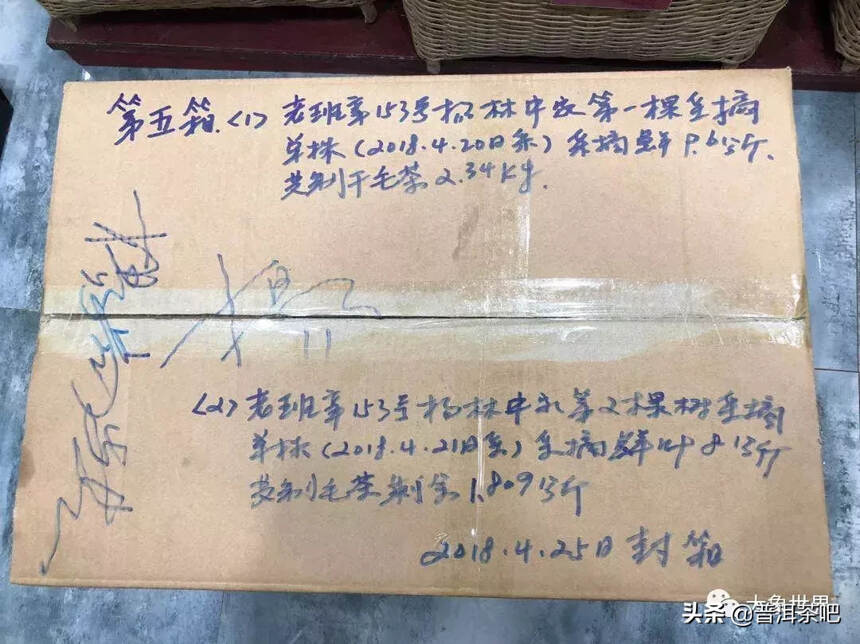 第五箱.<1>老班章153号杨林中农第一棵采摘
单株(2018.4.20日采)采摘鲜9.6公斤.
炒制干毛茶2.34Kg.
<2>老班章153号杨林中农第2棵树采摘
单株(2018.4.21日采)采摘鲜叶8公斤
炒制毛茶剩余1.809公斤
2018.4.25日封箱
大象世界
头条@普洱茶吧